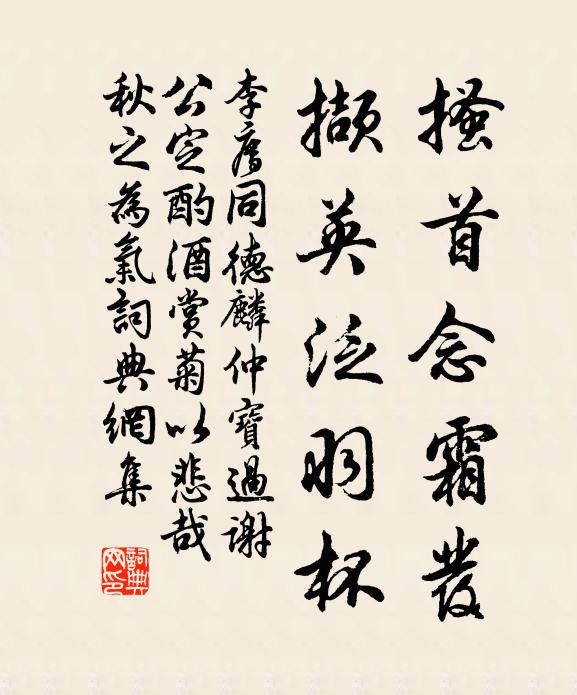 搔首念霜發
擷英泛羽杯
李廌同德麟仲寶過謝
公定酌酒賞菊以悲哉
秋之為氣詞典網集
詞典
网印